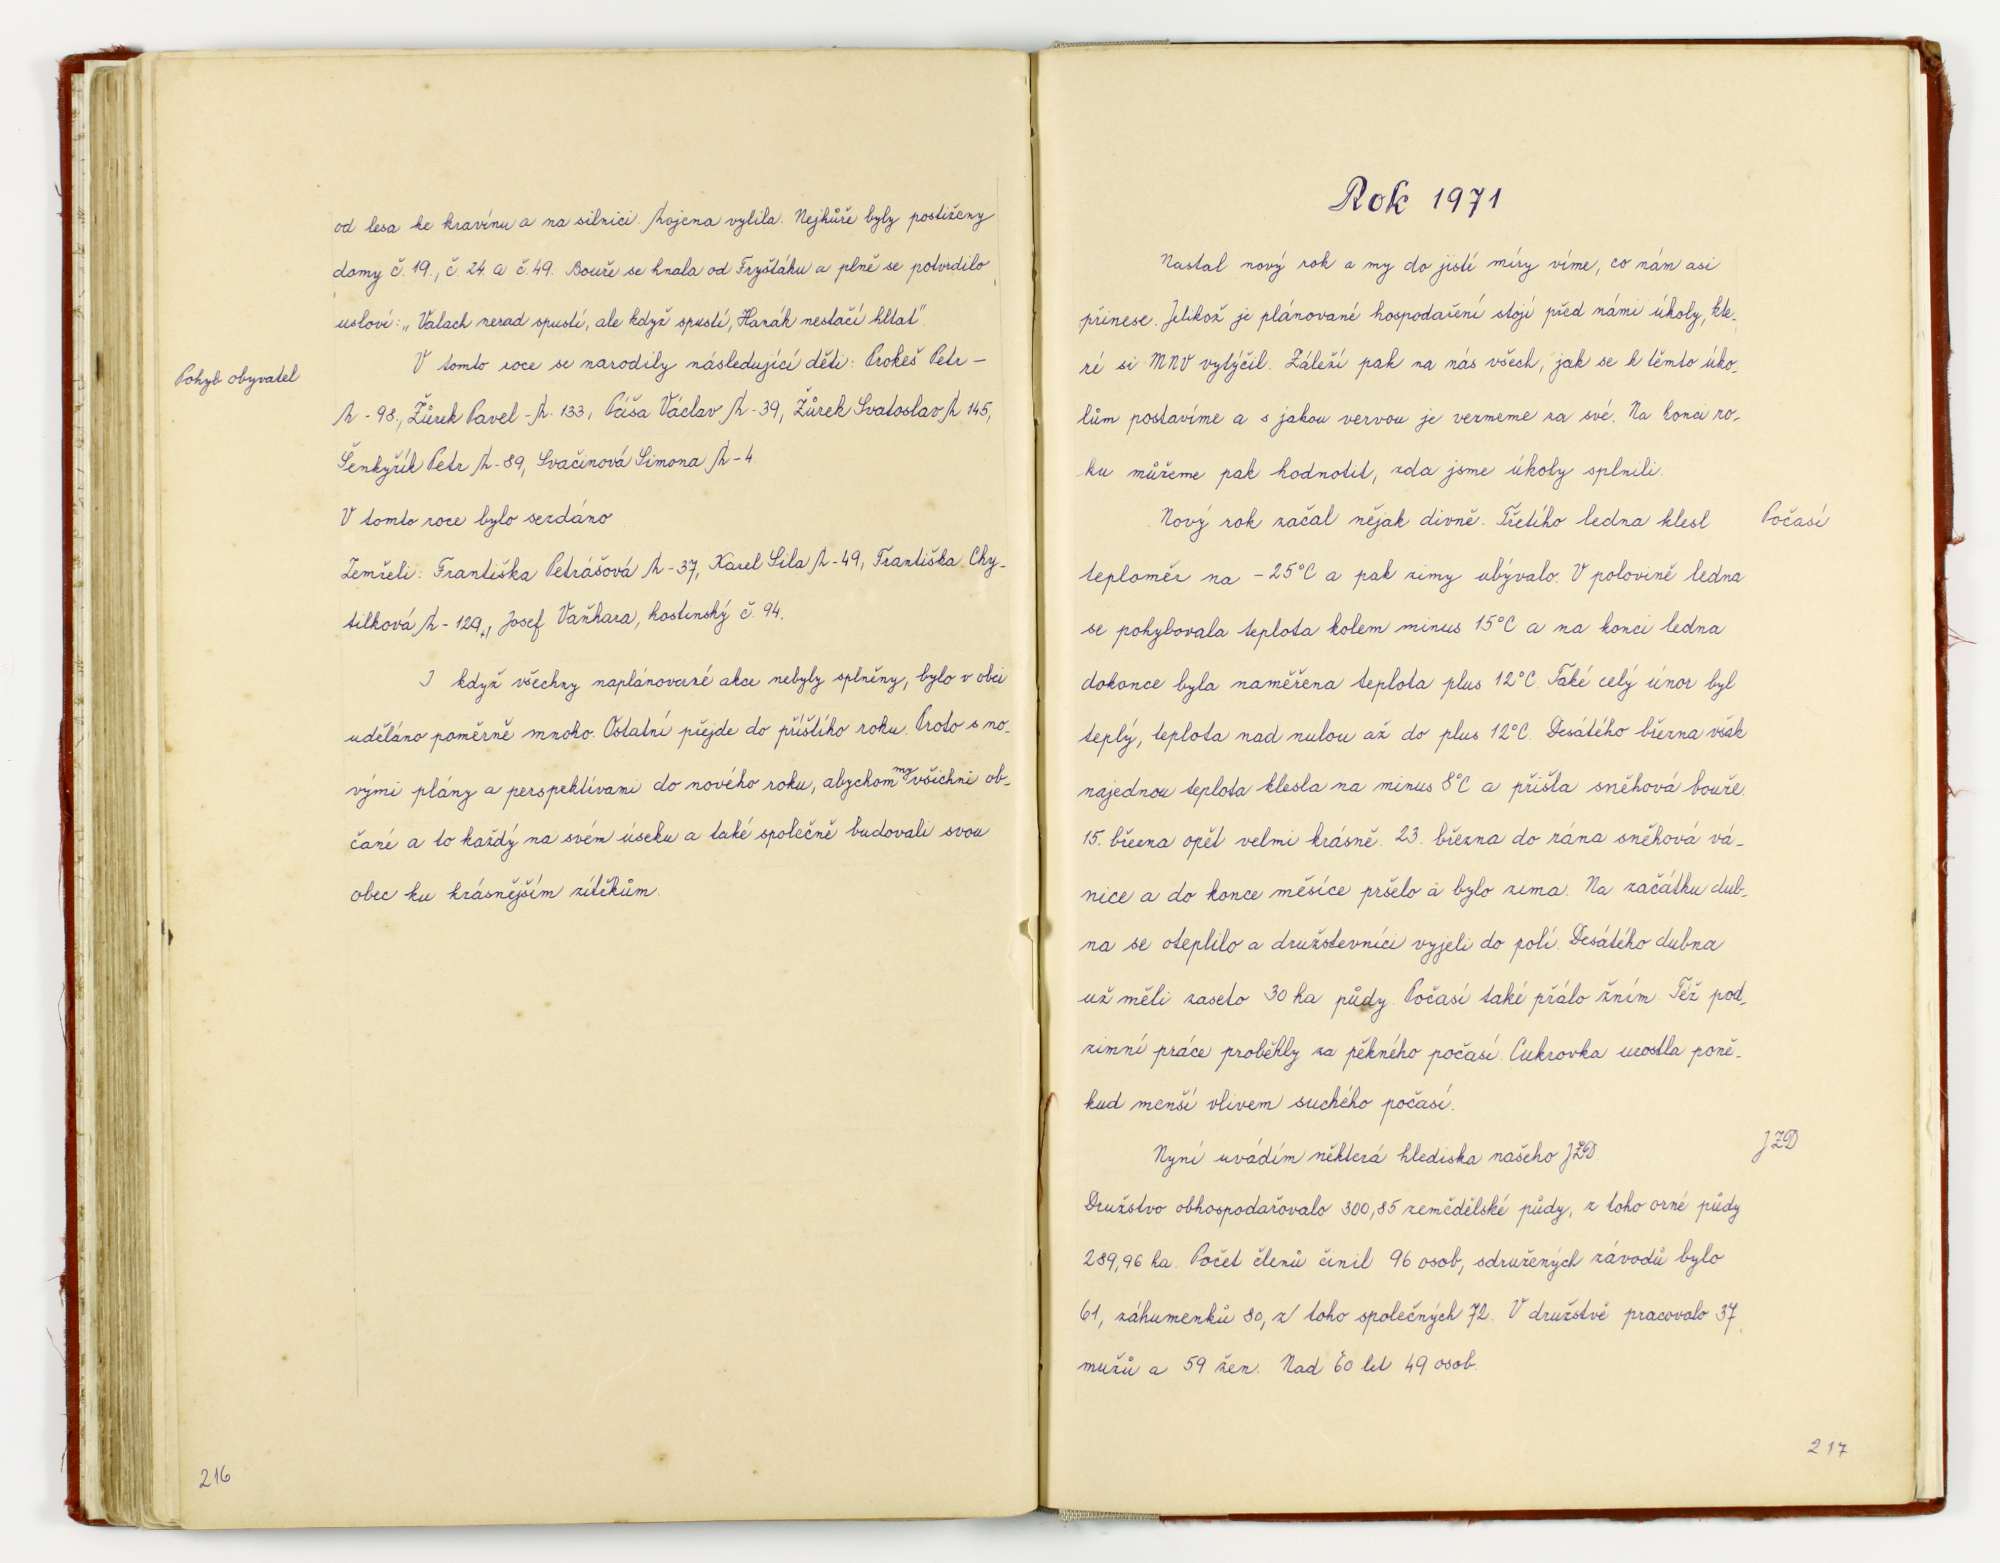 od lesa ke kravínu a na silnici hojena vylila. Nejhůře byly postiženy
domy č. 19., č. 24. a č. 49. Bouře se hnala od Fryštáku a plně se potvrdilo
úsloví: „Valach nerad spustí, ale když spustí, Hanák nestačí hltat".
Pohyb obyvatel
V tomto roce se narodily následující děti: Prokeš Petr –
- 98., Žůrek Pavel - 133, Páša Václav - 39, Žůrek Svatoslav 145,
Šenkyřík Petr - 89, Svačinová Simona - 4.
V tomto roce bylo sezdáno
Zemřeli: Františka Petrášová - 37, Karel Sila - 49, Františka Chy-
tilková - 129, Josef Vaňhara, hostinský č. 94.
I když všechny naplánované akce nebyly splněny, bylo v obci
uděláno poměrně mnoho. Ostatní přejde do příštího roku. Proto s no-
vými plány a perspektivami do nového roku, abychom my všichni ob-
čané a to každý na svém úseku a také společně budovali svou
obec ku krásnějším zítřkům.
216
Rok 1971
Nastal nový rok a my do jisté míry víme, co nám asi
přinese. Jelikož je plánované hospodaření stojí před námi úkoly, kte-
ré si MNV vytýčil. Záleží pak na nás všech, jak se k těmto úko-
lům postavíme a s jakou vervou je vezmeme za své. Na konci ro-
ku můžeme pak hodnotit, zda jsme úkoly splnili.
Nový rok začal nějak divně. Třetího ledna klesl
Počasí
teploměr na – 25°C a pak zimy ubývalo. V polovině ledna
se pohybovala teplota kolem minus 15°C a na konci ledna
dokonce byla naměřena teplota plus 12°C. Také celý únor byl
teplý, teplota nad nulou až do plus 12°C. Desátého března však
najednou teplota klesla na minus 8°C a přišla sněhová bouře.
15. března opět velmi krásně. 23. března do rána sněhová vá-
nice a do konce měsíce pršelo a bylo zima. Na začátku dub-
na se oteplilo a družstevníci vyjeli do polí. Desátého dubna
už měli zaseto 30 ha půdy. Počasí také přálo žním. Též pod-
zimní práce proběhly za pěkného počasí. Cukrovka vzrostla poně-
kud menší vlivem suchého počasí.
Nyní uvádím některá hlediska našeho JZD.
JZD
Družstvo obhospodařovalo 300,85 zemědělské půdy, z toho orné půdy
289,96 ha. Počet členů činil 96 osob, sdružených závodů bylo
61, záhumenků 80, z toho společných 72. V družstvě pracovalo 37
mužů a 59 žen. Nad 60 let 49 osob.
217